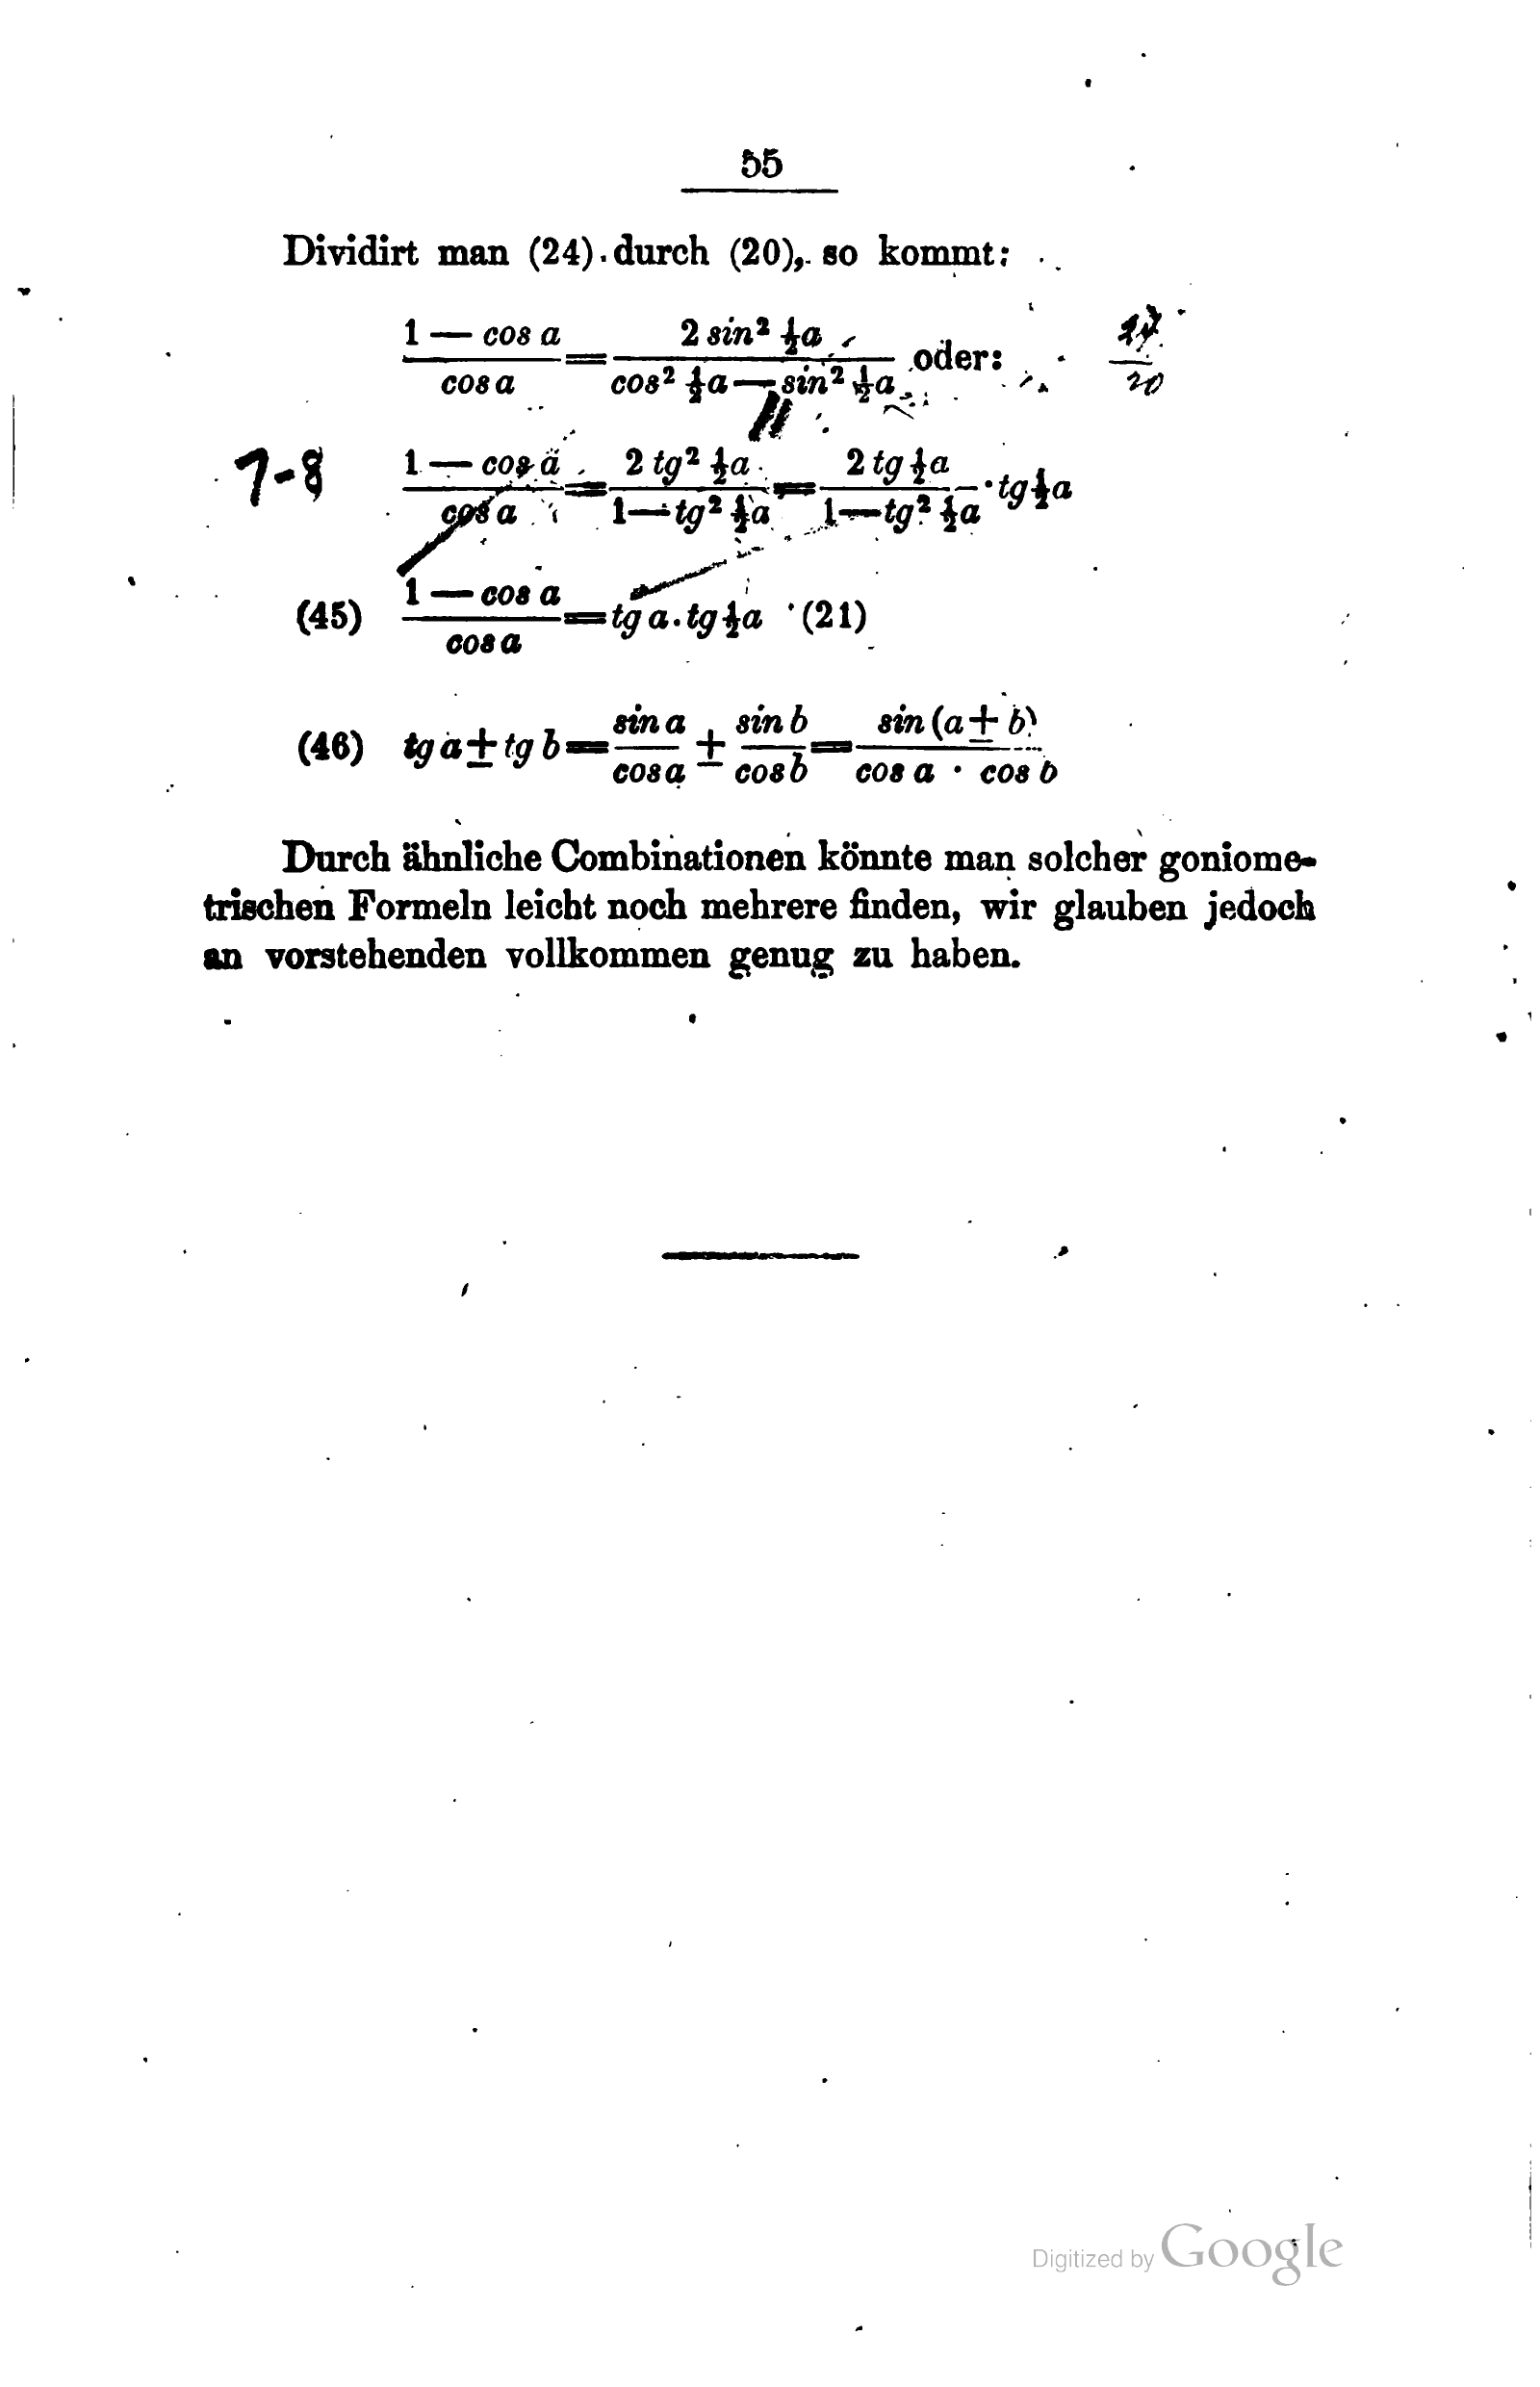 55
Dividirt man (24) durch (20), so kommt:
(1 — cos a)/(cos a) = (2 sin² ½a)/(cos² ½a — sin² ½a) oder:
20
7-8
(1 — cos a)/(cos a) = (2 tg² ½a)/(1 — tg² ½a) = (2 tg ½a)/(1 — tg² ½a) · tg ½a
(45) (1 — cos a)/(cos a) = tg a . tg ½a (21)
(46) tg a ± tg b = (sin a)/(cos a) ± (sin b)/(cos b) = (sin (a ± b))/(cos a · cos b)
Durch ähnliche Combinationen könnte man solcher goniome-
trischen Formeln leicht noch mehrere finden, wir glauben jedoch
an vorstehenden vollkommen genug zu haben.
Digitized by Google